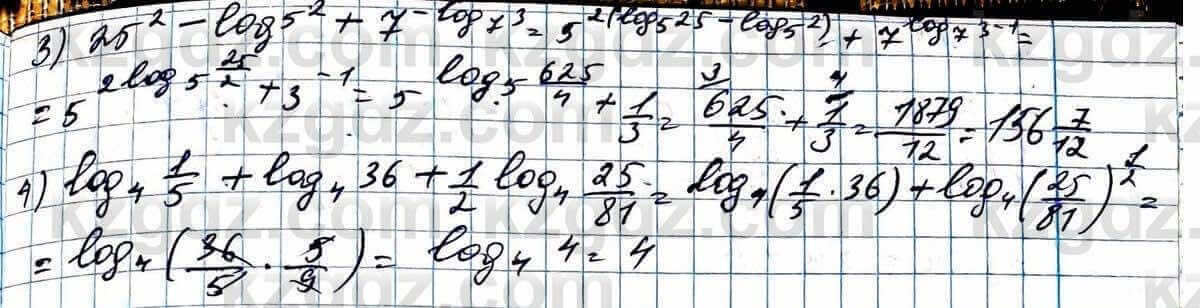 3) 25² - log5² + 7^(-log₇3) = 5^(2(log₅25 - log₅2)) + 7^(log₇3⁻¹) =
= 5^(2log₅ 25/2) + 3⁻¹ = 5^(log₅ 625/4) + 1/3 = 625/4 + 1/3 = 1879/12 = 156 7/12
4) log₄ 1/5 + log₄ 36 + 1/2 log₄ 25/81 = log₄(1/5 · 36) + log₄(25/81)^(1/2) =
= log₄(36/5 · 5/9) = log₄ 4 = 4
kzgdz.com